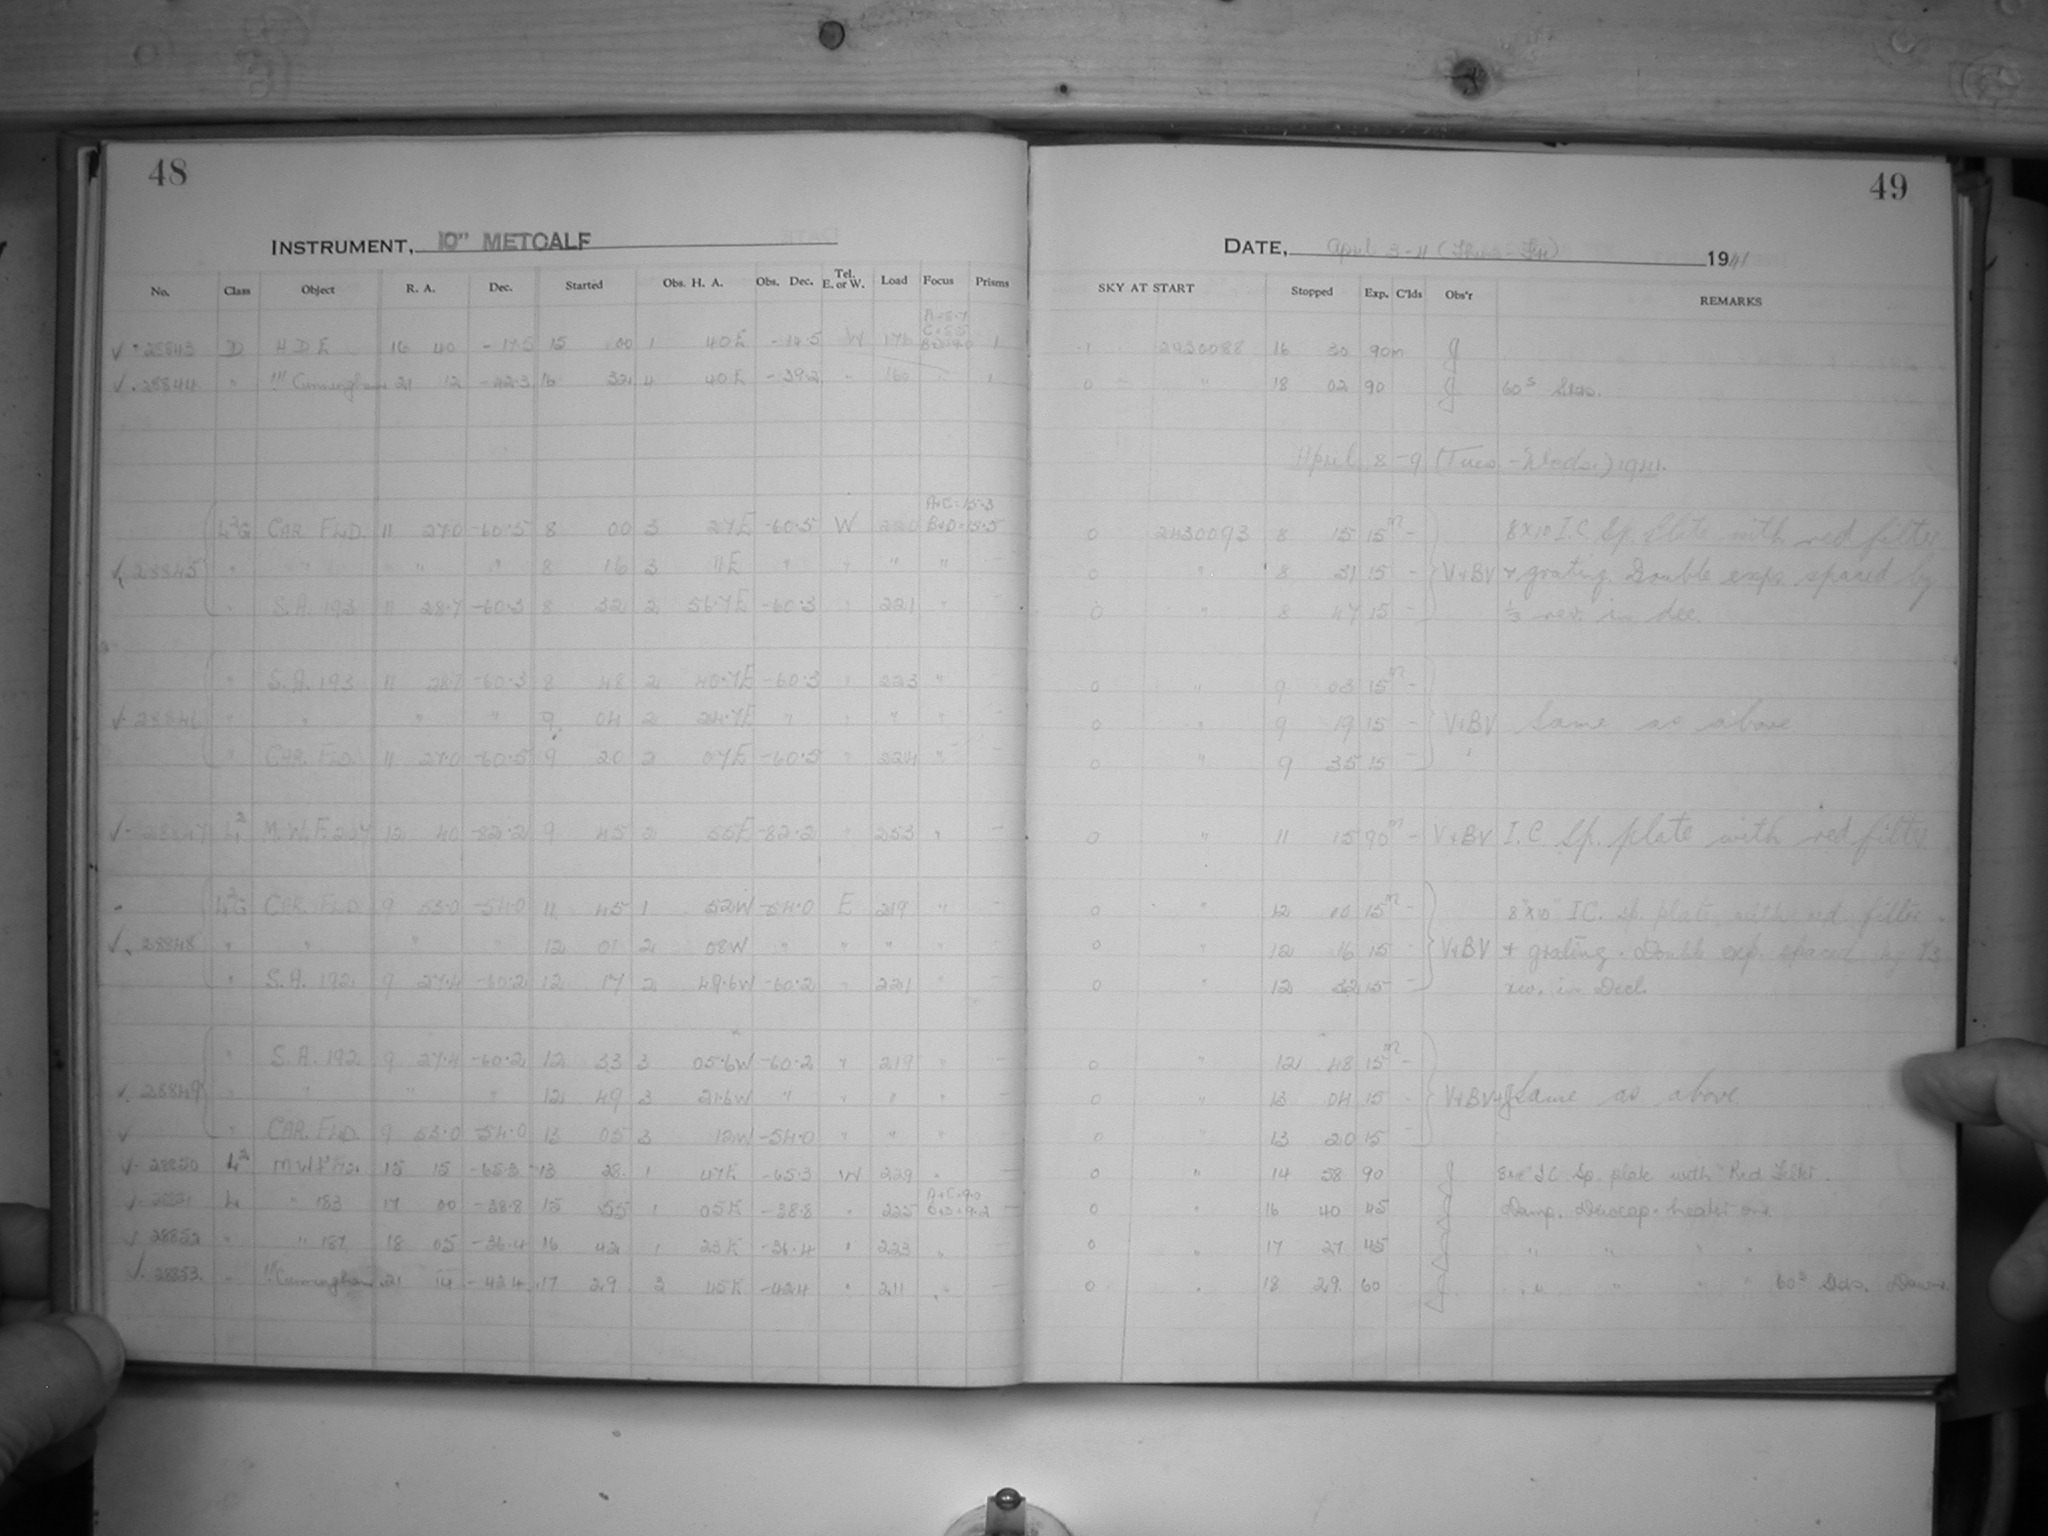 48
49
INSTRUMENT, 10" METCALF
DATE, April 3-4 (Thurs-Fri) 1941
No. Class Object R. A. Dec. Started Obs. H. A. Obs. Dec. Tel. E. or W. Load Focus Prisms SKY AT START Stopped Exp. C'lds Obs'r REMARKS
28843 D HDE 16 40 -17.5 15 00 1 40E W 1 2430088 16 30 90m J
28844 " !!! Cunningham 21 12 -42.3 16 32 4 40E -39.2 " 160 1 0 " 18 02 90 J 60s
April 8-9 (Tues-Weds.) 1941.
A+C=15.3
L²G CAR FLD 11 27.0 -60.5 8 00 3 27E -60.5 W 220 B+D=15.5 0 2430093 8 15 15m - 8x10 I.C. Sp. Plate with red filter
28845 " " " " 8 16 3 11E " " " " - 0 " 8 31 15 - V+BV + grating. Double exps. spaced by
" S.A. 193 11 28.7 -60.3 8 32 2 56.7E -60.3 " 221 " - 0 " 8 47 15 - 1/3 rev. in dec.
" S.A. 193 11 28.7 -60.3 8 48 2 40.7E -60.3 " 223 " - 0 " 9 03 15m -
28846 " " " " 9 04 2 24.7E " " " " - 0 " 9 19 15 - V+BV Same as above
" CAR. FLD. 11 27.0 -60.5 9 20 2 07E -60.5 " 224 " 0 " 9 35 15 -
28847 L² M.W.F. 227 12 40 -82.2 9 45 2 55E -82.2 " 253 " - 0 " 11 15 90m - V+BV I.C. Sp. plate with red filter
L²G CAR. FLD 9 53.0 -54.0 11 45 1 52W -54.0 E 219 " - 0 " 12 00 15m - 8"x10" I.C. sp. plate with red filter
28848 " " " " 12 01 2 08W " " " " - 0 " 12 16 15 - V+BV + grating. Double exp. spaced by 1/3
" S.A. 192 9 27.4 -60.2 12 17 2 49.6W -60.2 " 221 " - 0 " 12 32 15 - rev. in Decl.
" S.A. 192 9 27.4 -60.2 12 33 3 05.6W -60.2 " 219 " - 0 " 12 48 15m -
28849 " " " " 12 49 3 21.6W " " " " - 0 " 13 04 15 - V+BV+J Same as above
" CAR. FLD. 9 53.0 -54.0 13 05 3 12W -54.0 " " " - 0 " 13 20 15 -
28850 L² 15 15 -65.3 13 28 1 47E -65.3 W 229 " - 0 " 14 58 90 J I.C. Sp. plate with Red Filter.
28851 L " 183 17 00 -38.8 15 55 1 05E -38.8 " 225 A+C=9.0 B+D=9.2 - 0 " 16 40 45 J Damp. Dewcap heater on.
28852 " " 187 18 05 -36.4 16 42 1 23E -36.4 " 223 " - 0 " 17 27 45 J " " " "
28853 " !!! Cunningham 21 14 -42.4 17 29 45E -42.4 " 211 " - 0 " 18 29 60 J " " " " 60s